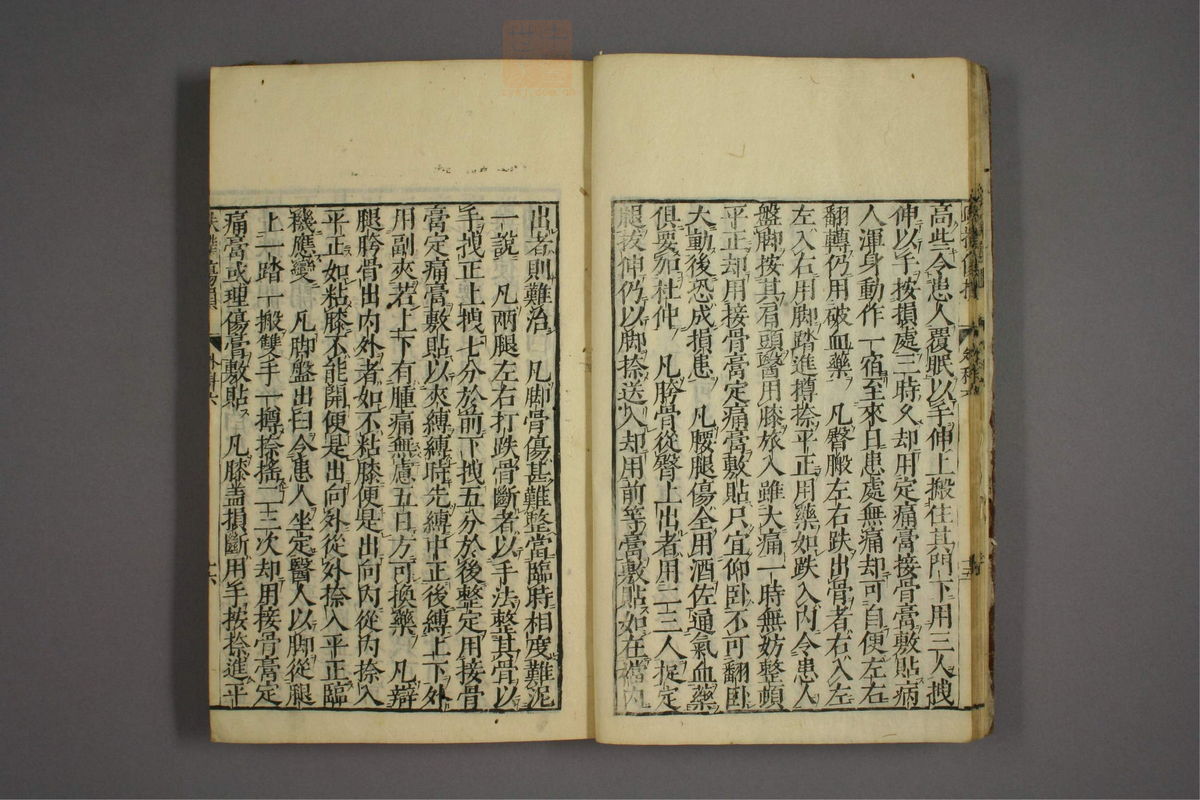 高此令患人覆眠以手伸上搬住其門下用三人拽
伸以手按損處三時久却用定痛膏接骨膏敷貼病
人渾身動作一宿至來日患處無痛却可自便左右
翻轉仍用破血藥　凡臀腳左右跌出骨者右入左
左入右用脚踏進撙捺平正用藥如跌入內令患人
盤脚按其肩頭醫用膝抜入雖大痛一時無妨整頓
平正却用接骨膏定痛膏敷貼尺宜仰卧不可翻卧
大動後恐成損患　凡腰腿傷全用酒佐通氣血藥
俱要加杜仲　凡胯骨從臀上出者用二三人捉定
腿拔伸仍以脚捺送入却用前等膏敷貼如在襠內
出者則難治　凡脚骨傷甚難整當臨時相度難泥
一說　凡兩腿左右打跌骨斷者以手法整其骨以
手拽正上拽七分於前下拽五分於後整定用接骨
膏定痛膏敷貼以夾縛縛時先縛中正後縛上下外
用副夾若上下有腫痛無慮五日方可換藥　凡辯
腿胯骨出內外者如不粘膝便是出向內從內捺入
平正如粘膝不能開便是出向外從外捺入平正臨
機應變　凡脚盤出臼令患人坐定醫人以脚從腿
上一踏一搬雙手一撙捺搖二三次却用接骨膏定
痛膏或理傷膏敷貼　凡膝盖損斷用手按捺進平